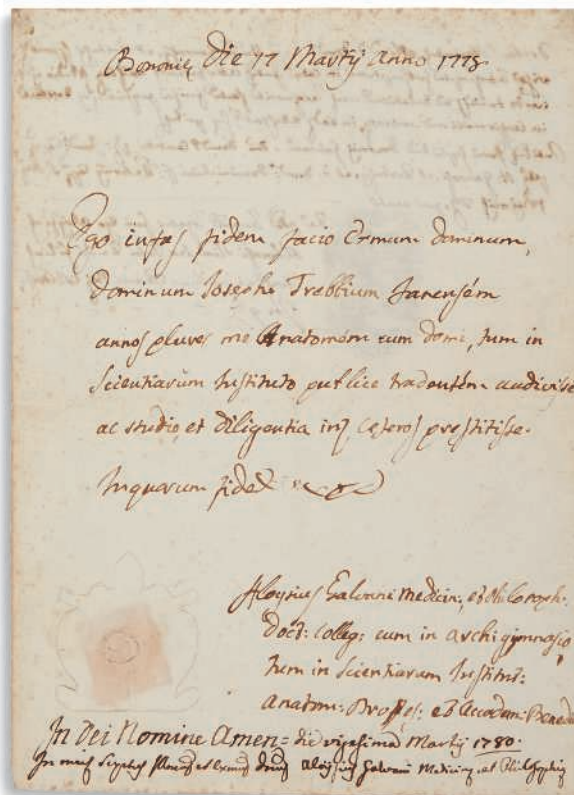 Bononię Die 17 Martij Anno 1778
Ego infas fidem facio Ermum dominum,
dominum Josephū Trebbium Fanensem
annos plures me Anatomēn cum domi, tum in
Scientiarum Instituto publice tradentem audivisse
ac studio, et diligentia int cęteros prestitisse.
In quarum fidem
Aloysius Galvani medicin: et Philosoph:
Doct: Colleg: cum in Archigymnasio
tum in Scientiarum Institut:
Anatom: Profes: et Accadem: Bened
In Dei Nomine Amen = die vigesima Martij 1780.
In mei Aloysius Galvani Medicinę, et Philosophię